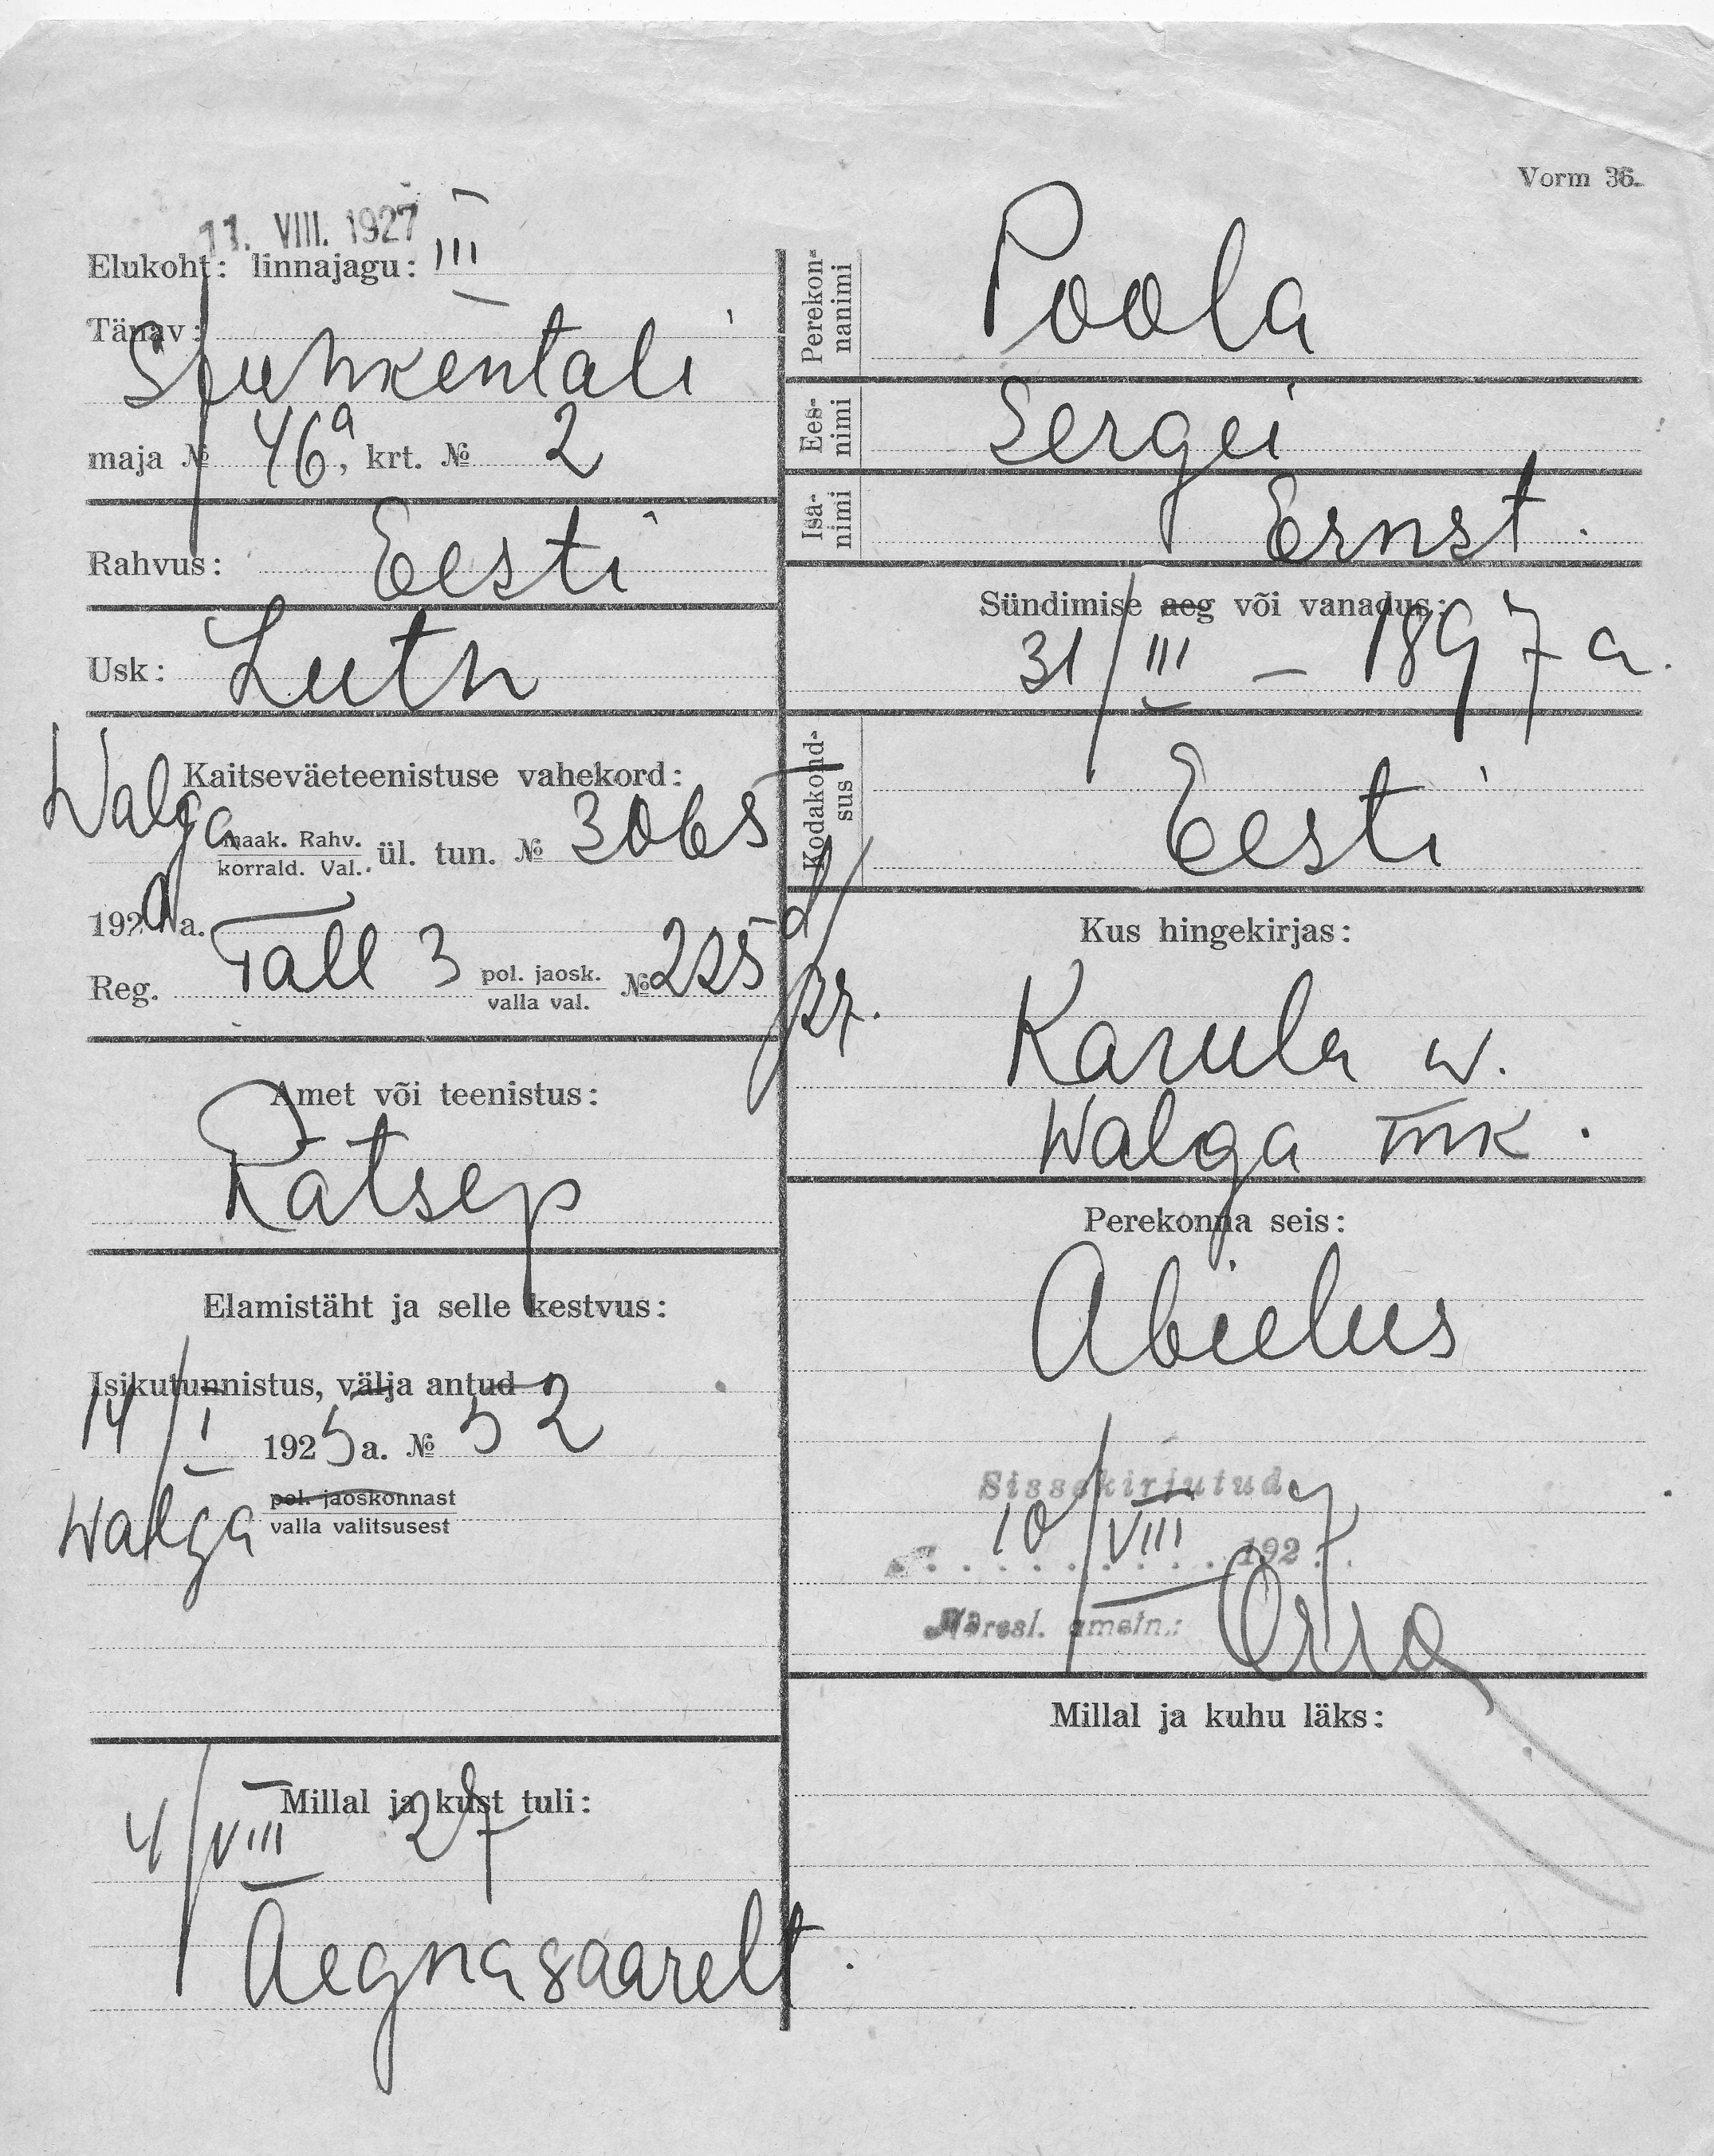 Vorm 36.
11. VIII. 1927
Elukoht: linnajagu: III
Tänav:
Juhkentali
maja № 46a, krt. № 2
Rahvus: Eesti
Usk: Luth
Kaitseväeteenistuse vahekord:
Walga maak. Rahv. korrald. Val. ül. tun. № 3065
1920 a.
Reg. Tall 3 pol. jaosk. valla val. № 225
27.
Amet või teenistus:
Rätsep
Elamistäht ja selle kestvus:
Isikutunnistus, välja antud
14/I 1925 a. № 52
Walga pol. jaoskonnast
valla valitsusest
Millal ja kust tuli:
4/VIII 27
Aegnasaarelt.
Perekonnanimi
Poola
Eesnimi
Sergei
Isanimi
Ernst.
Sündimise aeg või vanadus:
31/III – 1897 a.
Kodakondsus
Eesti
Kus hingekirjas:
Karula w.
Walga mk.
Perekonna seis:
Abielus
Sissekirjutud
10/VIII 1927
Adresl. ametn.:
Millal ja kuhu läks: